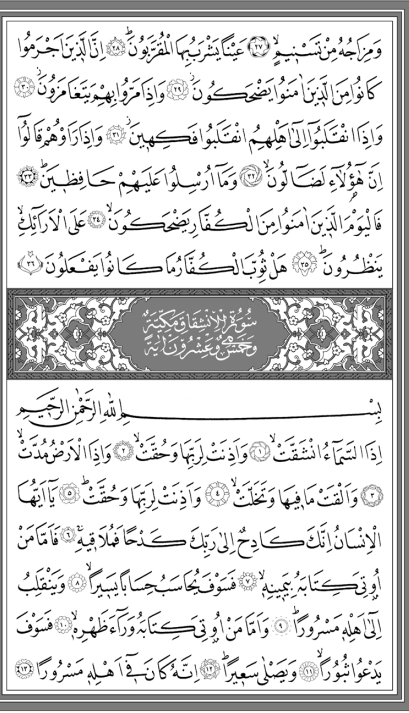 وَمِزَاجُهُ مِنْ تَسْنِيمٍۙ ﴿٢٧﴾ عَيْنًا يَشْرَبُ بِهَا الْمُقَرَّبُونَۜ ﴿٢٨﴾ اِنَّ الَّذِينَ اَجْرَمُوا
كَانُوا مِنَ الَّذِينَ اٰمَنُوا يَضْحَكُونَۘ ﴿٢٩﴾ وَاِذَا مَرُّوا بِهِمْ يَتَغَامَزُونَۘ ﴿٣٠﴾
وَاِذَا انْقَلَبُٓوا اِلٰٓى اَهْلِهِمُ انْقَلَبُوا فَكِهِينَۘ ﴿٣١﴾ وَاِذَا رَاَوْهُمْ قَالُٓوا
اِنَّ هٰٓؤُ۬لَٓاءِ لَضَٓالُّونَۙ ﴿٣٢﴾ وَمَٓا اُرْسِلُوا عَلَيْهِمْ حَافِظِينَۜ ﴿٣٣﴾
فَالْيَوْمَ الَّذِينَ اٰمَنُوا مِنَ الْكُفَّارِ يَضْحَكُونَۙ ﴿٣٤﴾ عَلَى الْاَرَٓائِكِۙ
يَنْظُرُونَۜ ﴿٣٥﴾ هَلْ ثُوِّبَ الْكُفَّارُ مَا كَانُوا يَفْعَلُونَ ﴿٣٦﴾
سُورَةُ الْاِنْشِقَاقِ مَكِّيَّةٌ
وَهِيَ خَمْسٌ وَعِشْرُونَ اٰيَةً
بِسْمِ اللهِ الرَّحْمٰنِ الرَّحِيمِ
اِذَا السَّمَٓاءُ انْشَقَّتْۙ ﴿١﴾ وَاَذِنَتْ لِرَبِّهَا وَحُقَّتْۙ ﴿٢﴾ وَاِذَا الْاَرْضُ مُدَّتْۙ
﴿٣﴾ وَاَلْقَتْ مَا فِيهَا وَتَخَلَّتْۙ ﴿٤﴾ وَاَذِنَتْ لِرَبِّهَا وَحُقَّتْۜ ﴿٥﴾ يَٓا اَيُّهَا
الْاِنْسَانُ اِنَّكَ كَادِحٌ اِلٰى رَبِّكَ كَدْحًا فَمُلَاقِيهِۚ ﴿٦﴾ فَاَمَّا مَنْ
اُوتِيَ كِتَابَهُ بِيَمِينِهِۙ ﴿٧﴾ فَسَوْفَ يُحَاسَبُ حِسَابًا يَسِيرًاۙ ﴿٨﴾ وَيَنْقَلِبُ
اِلٰٓى اَهْلِهِ مَسْرُورًاۜ ﴿٩﴾ وَاَمَّا مَنْ اُوتِيَ كِتَابَهُ وَرَٓاءَ ظَهْرِهِۙ ﴿١٠﴾ فَسَوْفَ
يَدْعُوا ثُبُورًاۙ ﴿١١﴾ وَيَصْلٰى سَعِيرًاۜ ﴿١٢﴾ اِنَّهُ كَانَ فِٓي اَهْلِهِ مَسْرُورًاۜ ﴿١٣﴾